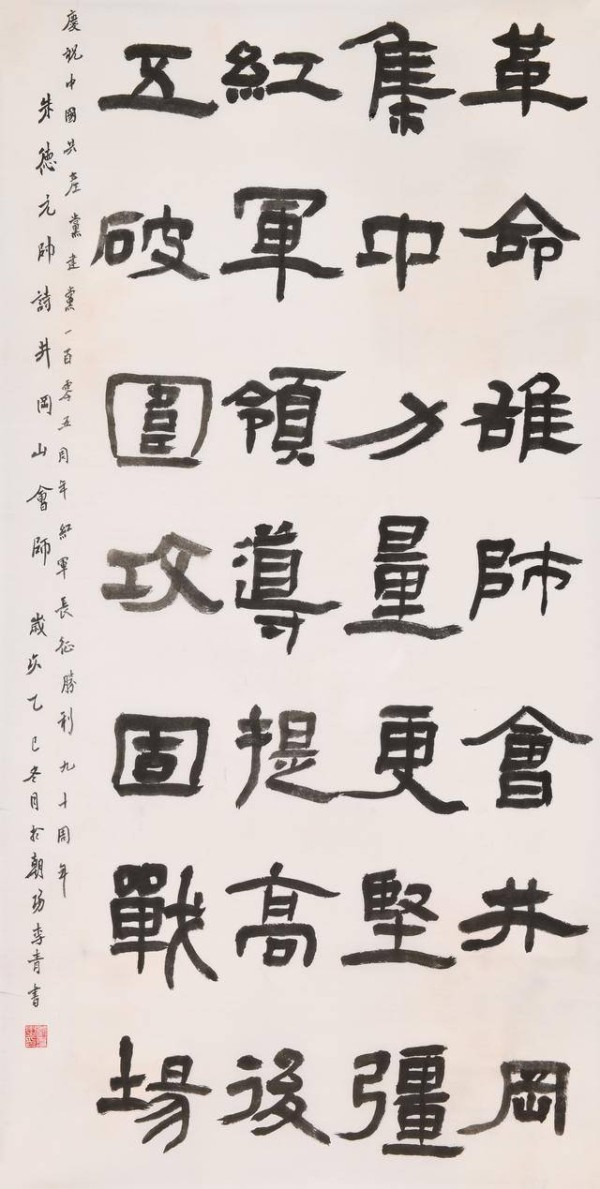 革命雄師會井岡
集中力量更堅彊
紅軍領導提高後
五破圍攻固戰場
慶祝中國共產黨建黨一百零五周年紅軍長征勝利九十周年
朱德元帥詩井岡山會師 歲次乙巳冬月於朝陽李青書